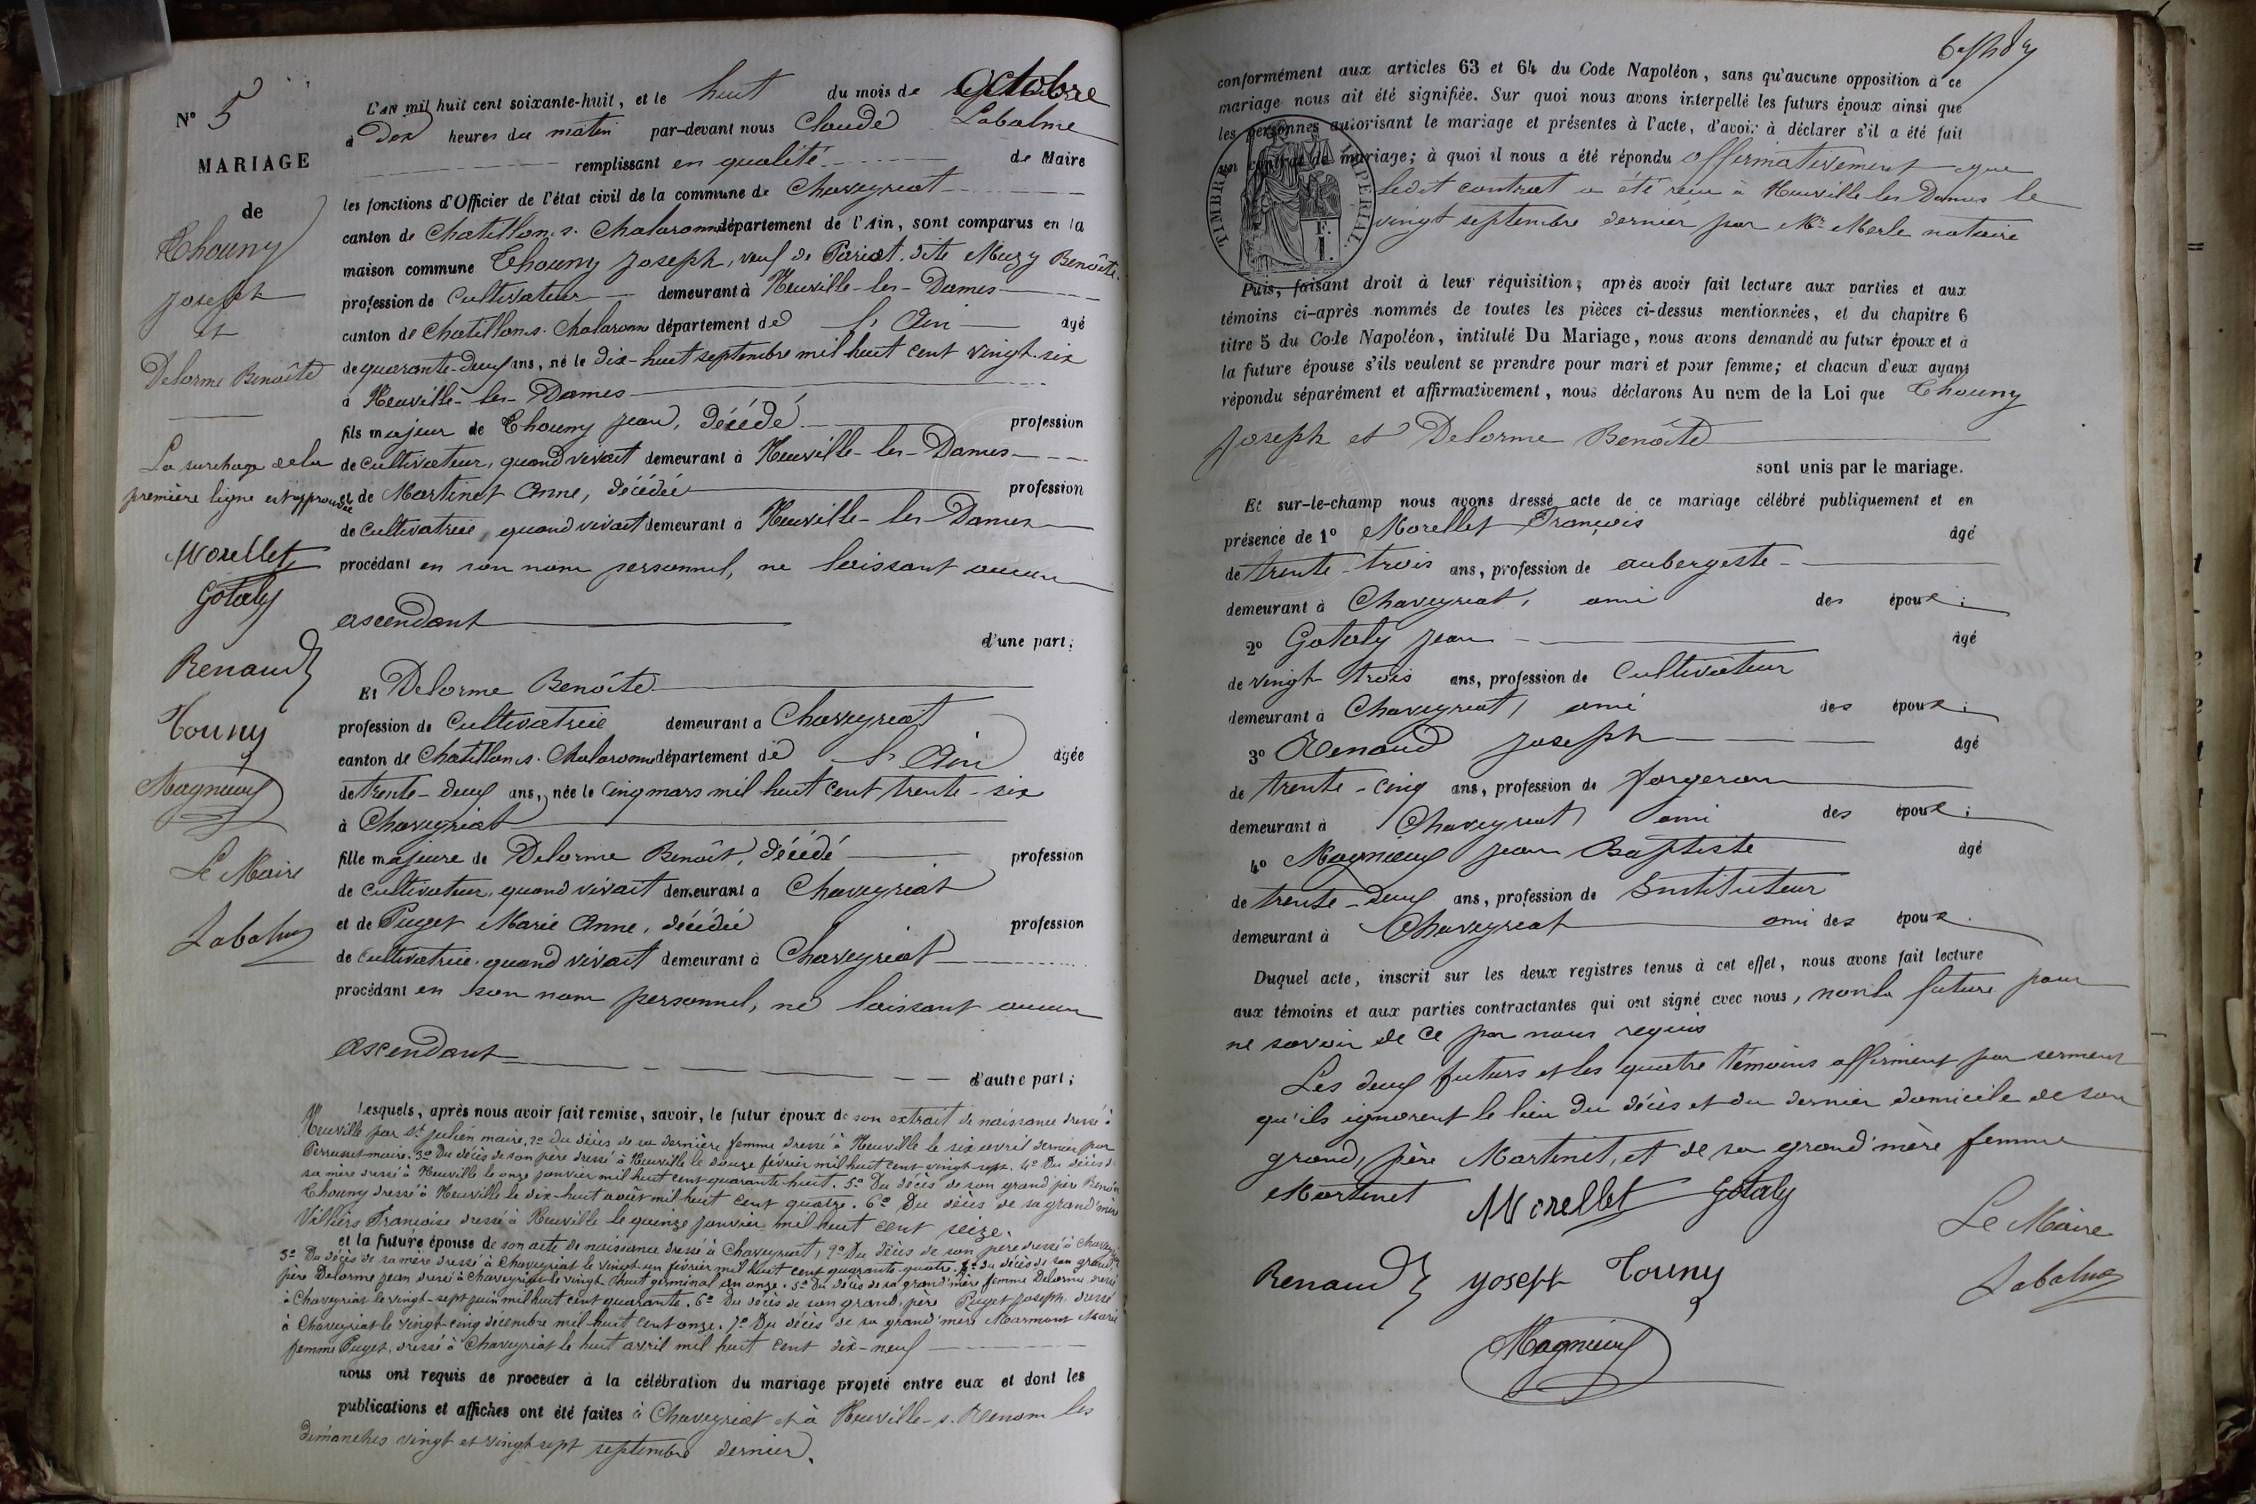 N° 5
MARIAGE
de
Thouny
Joseph
et
Delorme Benoîte
La surcharge de la
première ligne est approuvée
Morellet
Gotaly
Renaud
Touny
Magnieux
Le Maire
Labalme
L'AN mil huit cent soixante-huit, et le huit du mois de Octobre
à Dix heures du matin par-devant nous Claude Labalme
remplissant en qualité de Maire
les fonctions d'Officier de l'état civil de la commune de Chaveyriat
canton de Chatillon s. Chalaronne département de l'Ain, sont comparus en la
maison commune Thouny Joseph, veuf de Pariat dite Muzy Benoîte
profession de Cultivateur demeurant à Neuville-les-Dames
canton de Chatillon s. Chalaronne département de l'Ain âgé
de quarante-deux ans, né le dix-huit septembre mil huit cent vingt-six
à Neuville-les-Dames
fils majeur de Thouny Jean, décédé profession
de cultivateur, quand vivait demeurant à Neuville-les-Dames
et de Martinet Anne, décédée profession
de cultivatrice, quand vivait demeurant à Neuville-les-Dames
procédant en son nom personnel, ne laissant aucun
ascendant
d'une part;
Et Delorme Benoîte
profession de Cultivatrice demeurant à Chaveyriat
canton de Chatillon s. Chalaronne département de l'Ain âgée
de trente-deux ans, née le cinq mars mil huit cent trente-six
à Chaveyriat
fille majeure de Delorme Benoît, décédé profession
de cultivateur, quand vivait demeurant à Chaveyriat
et de Puget Marie Anne, décédée profession
de cultivatrice quand vivait demeurant à Chaveyriat
procédant en son nom personnel, ne laissant aucun
ascendant
d'autre part;
Lesquels, après nous avoir fait remise, savoir, le futur époux de son extrait de naissance dressé à
Neuville par St Julien maire, 2° Du décès de sa dernière femme dressé à Neuville le six avril dernier par
maire. 3° Du décès de son père dressé à Neuville le douze février mil huit cent vingt-sept. 4° Du décès de
sa mère dressé à Neuville le onze janvier mil huit cent quarante-huit. 5° Du décès de son grand père Benoît
Thouny dressé à Neuville le dix-huit août mil huit cent quatre. 6° Du décès de sa grand'mère
Villiers Françoise dressé à Neuville le quinze janvier mil huit cent seize.
et la future épouse de son acte de naissance dressé à Chaveyriat, 2° Du décès de son père dressé à Chaveyriat
3° Du décès de sa mère dressé à Chaveyriat le vingt-un février mil huit cent quarante-quatre. 4° du décès de son grand
père Delorme Jean dressé à Chaveyriat le vingt-huit germinal an onze. 5° Du décès de sa grand'mère femme Delorme dressé
à Chaveyriat le vingt-sept juin mil huit cent quarante. 6° Du décès de son grand-père Puget Joseph dressé
à Chaveyriat le vingt-cinq décembre mil huit cent onze. 7° Du décès de sa grand'mère Marmont Marie
femme Puget, dressé à Chaveyriat le huit avril mil huit cent dix-neuf
nous ont requis de procéder à la célébration du mariage projeté entre eux et dont les
publications et affiches ont été faites à Chaveyriat et à Neuville-s. Renom les
dimanches vingt et vingt sept septembre dernier.
conformément aux articles 63 et 64 du Code Napoléon, sans qu'aucune opposition à ce
mariage nous ait été signifiée. Sur quoi nous avons interpellé les futurs époux ainsi que
les personnes autorisant le mariage et présentes à l'acte, d'avoir à déclarer s'il a été fait
un contrat de mariage; à quoi il nous a été répondu affirmativement que
ledit contrat a été reçu à Neuville les Dames le
vingt septembre dernier par Me Merle notaire
TIMBRE IMPERIAL.
Puis, faisant droit à leur réquisition; après avoir fait lecture aux parties et aux
témoins ci-après nommés de toutes les pièces ci-dessus mentionnées, et du chapitre 6
titre 5 du Code Napoléon, intitulé Du Mariage, nous avons demandé au futur époux et à
la future épouse s'ils veulent se prendre pour mari et pour femme; et chacun d'eux ayant
répondu séparément et affirmativement, nous déclarons Au nom de la Loi que Thouny
Joseph et Delorme Benoîte
sont unis par le mariage.
Et sur-le-champ nous avons dressé acte de ce mariage célébré publiquement et en
présence de 1° Morellet François âgé
de trente-trois ans, profession de aubergiste
demeurant à Chaveyriat, ami des époux;
2° Gotaly Jean âgé
de vingt trois ans, profession de Cultivateur
demeurant à Chaveyriat, ami des époux;
3° Renaud Joseph âgé
de trente-cinq ans, profession de forgeron
demeurant à Chaveyriat, ami des époux;
4° Magnieux Jean Baptiste âgé
de trente-deux ans, profession de Instituteur
demeurant à Chaveyriat ami des époux.
Duquel acte, inscrit sur les deux registres tenus à cet effet, nous avons fait lecture
aux témoins et aux parties contractantes qui ont signé avec nous, non la future pour
ne savoir de ce par nous requis
Les deux futurs et les quatre témoins affirment par serment
qu'ils ignorent le lieu du décès et du dernier domicile de son
grand, père Martinet, et de sa grand'mère femme
Martinet Morellet Gotaly
Le Maire
Renaud Joseph Touny Labalme
Magnieux